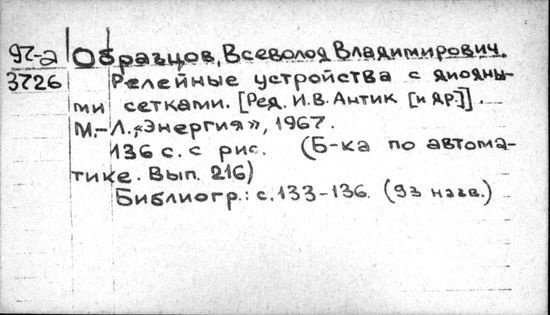 97-2 Образцов, Всеволод Владимирович.
3726 Релейные устройства с диодны-
ми сетками. [Ред. И.В. Антик [и др.]].
М.-Л. „Энергия", 1967.
136 с. с рис. (Б-ка по автома-
тике. Вып. 216)
Библиогр.: с. 133-136. (93 назв.)